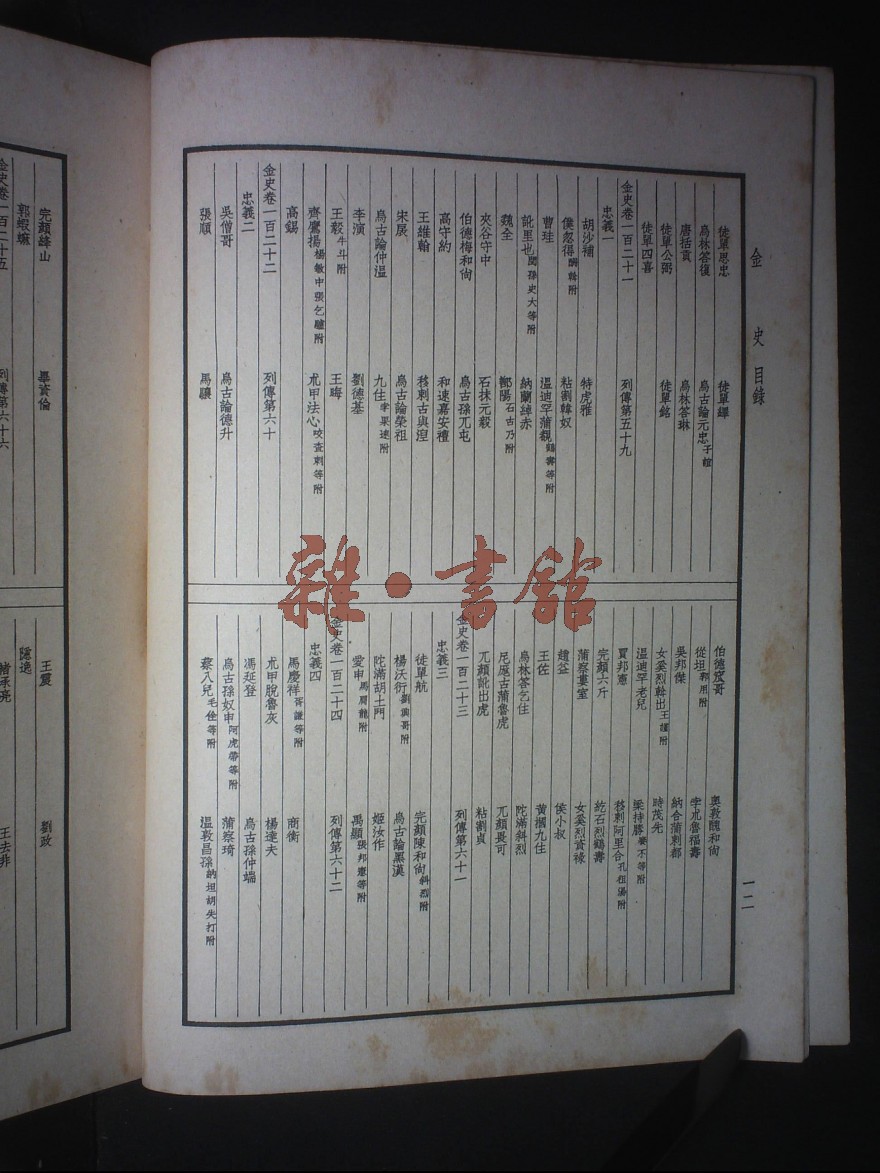 金史目錄
一二
徒單思忠 徒單繹
烏林答復 烏古論元忠子誼
唐括貢 烏林答琳
徒單公弼 徒單銘
徒單四喜
金史卷一百二十一 列傳第五十九
忠義一
胡沙補 特虎雅
僕忽得酬斡附 粘割韓奴
曹珪 溫迪罕蒲覩鶴壽等附
訛里也閔孫史大等附 納蘭綽赤
魏全 鄯陽石古乃附
夾谷守中 石抹元毅
伯德梅和尙 烏古孫兀屯
高守約 和速嘉安禮
王維翰 移剌古與涅
宋扆 烏古論榮祖
烏古論仲溫 九住李果速附
李演 劉德基
王毅牛斗附 王晦
齊鷹揚楊敏中張乞驢附 朮甲法心咬查剌等附
高錫
金史卷一百二十二 列傳第六十
忠義二
吳僧哥 烏古論德升
張順 馬驤
伯德窊哥 奧敦醜和尙
從坦郭用附 孛朮魯福壽
吳邦傑 納合蒲剌都
女奚烈斡出王謹附 時茂先
溫迪罕老兒 梁持勝晏不等附
賈邦憲 移剌阿里合孔祖湯附
完顏六斤 紇石烈鶴壽
蒲察婁室 女奚烈資祿
趙益 侯小叔
王佐 黃摑九住
烏林答乞住 陀滿斜烈
尼厖古蒲魯虎 兀顏畏可
兀顏訛出虎 粘割貞
金史卷一百二十三 列傳第六十一
忠義三
徒單航 完顏陳和尙斜烈附
楊沃衍劉興哥附 烏古論黑漢
陀滿胡土門 姬汝作
愛申馬肩龍附 禹顯張邦憲等附
金史卷一百二十四 列傳第六十二
忠義四
馬慶祥胥謙等附 商衡
朮甲脫魯灰 楊達夫
馮延登 烏古孫仲端
烏古孫奴申阿虎帶等附 蒲察琦
蔡八兒毛佺等附 溫敦昌孫納坦胡失打附
完顏絳山 畢資倫
郭蝦蟆
金史卷一百二十五 列傳第六十六
王震 劉政
隱逸
褚承亮 王去非
雜·書館